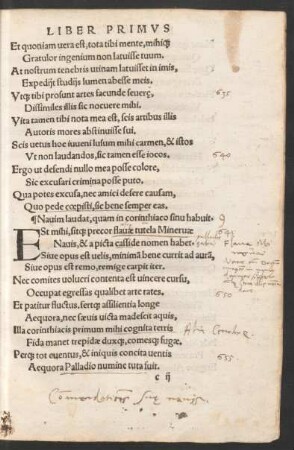 LIBER PRIMVS
Et quoniam uera est, tota tibi mente, mihiq;
Gratulor ingenium non latuisse tuum.
At nostrum tenebris utinam latuisset in imis,
Expedijt studijs lumen abesse meis.
Vtq; tibi prosunt artes facunde seueræ, 635
Dissimiles illis sic nocuere mihi.
Vita tamen tibi nota mea est, scis artibus illis
Autoris mores abstinuisse sui.
Scis uetus hoc iuueni lusum mihi carmen, & istos
Vt non laudandos, sic tamen esse iocos. 640
Ergo ut defendi nullo mea posse colore,
Sic excusari crimina posse puto.
Qua potes excusa, nec amici desere causam,
Quo pede cœpisti, sic bene semper eas.
¶Nauim laudat, quam in corinthiaco sinu habuit. 9
Est mihi, sitq; precor flauæ tutela Mineruæ
Nauis, & a picta casside nomen habet.
Siue opus est uelis, minimã bene currit ad aurã,
Siue opus est remo, remige carpit iter.
Nec comites uolucri contenta est uincere cursu,
Occupat egressas qualibet arte rates. 650
Et patitur fluctus, fertq; assilientia longe
Aequora, nec sæuis uicta madescit aquis,
Illa corinthiacis primum mihi cognita terris
Fida manet trepidæ duxq;, comesq; fugæ,
Perq; tot euentus, & iniquis concita uentis 655
Aequora Palladio numine tuta fuit.
c ij